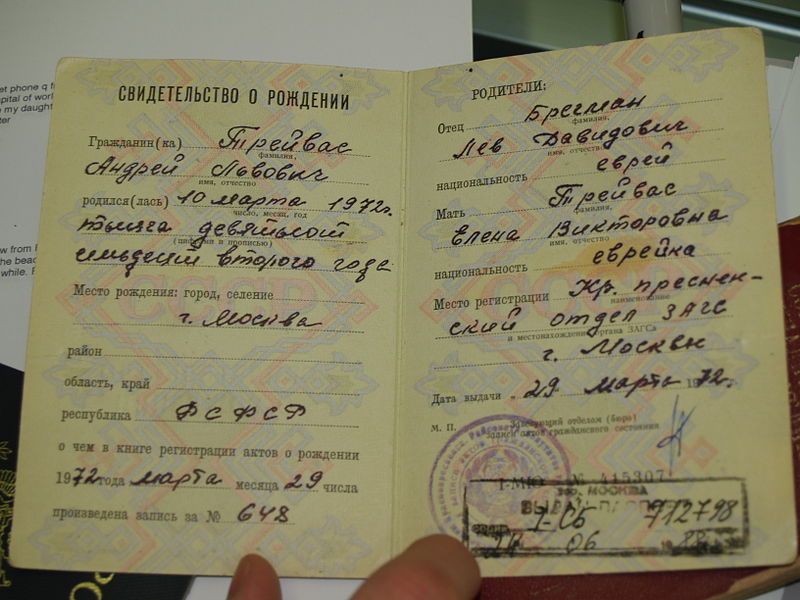 et phone q f
pital of worl
e my daught
ter
w from
the bea
while.
СВИДЕТЕЛЬСТВО О РОЖДЕНИИ
Гражданин(ка) Трейвас
фамилия,
Андрей Львович
имя, отчество
родился(лась) 10 марта 1972г.
число, месяц, год
тысяча девятьсот
(цифрами и прописью)
семьдесят второго года
Место рождения: город, селение
г. Москва
район
область, край
республика РСФСР
о чем в книге регистрации актов о рождении
1972 года марта месяца 29 числа
произведена запись за № 648
РОДИТЕЛИ:
Отец Брегман
фамилия,
Лев Давидович
имя, отчество
национальность еврей
Мать Трейвас
фамилия,
Елена Викторовна
имя, отчество
национальность еврейка
Место регистрации Кр. преснен-
наименование
ский отдел ЗАГС
и местонахождение органа ЗАГСа
г. Москвы
Дата выдачи „ 29 марта 1972.
М. П. Заведующий отделом (бюро)
записи актов гражданского состояния
I-МЮ № 415307
гор. МОСКВА
I-СБ 712798
06 1988